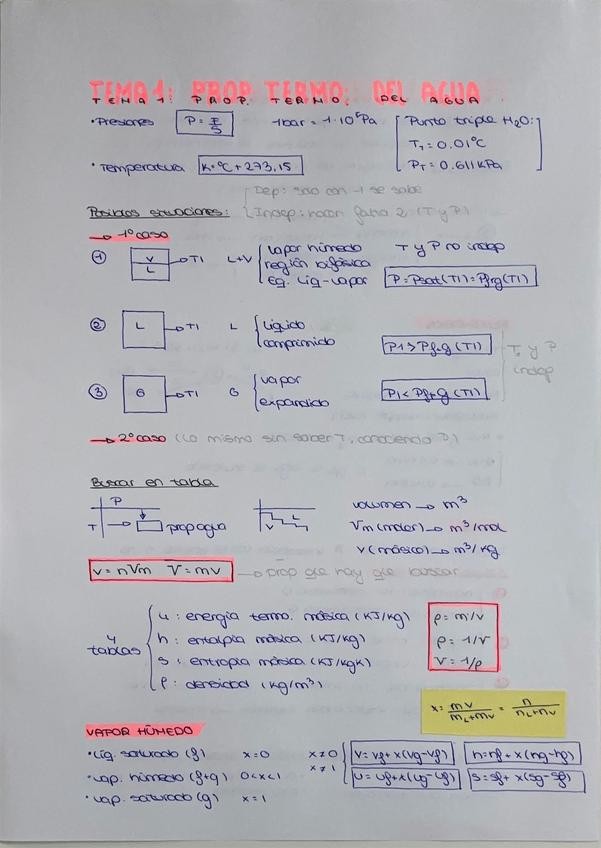 TEMA 1: PROP. TERMO. DEL AGUA
TEMA 1 PROP. TERMO. DEL AGUA
• Presiones P = F/S 1bar = 1·10⁵Pa
Punto triple H₂O:
T_T = 0.01ºC
P_T = 0.611 kPa
• Temperatura K = ºC + 273,15
Posibles situaciones:
Dep: solo con 1 se sabe
Indep: hacen falta 2 (T y P)
→ 1º caso
① V L → T1 L+V
vapor húmedo
región bifásica
Eq. Liq-vapor
T y P no indep
P = Psat(T1) = Pf+g(T1)
② L → T1 L
Líquido
comprimido
P1 > Pf+g(T1)
③ G → T1 G
vapor
expandido
P1 < Pf+g(T1)
T y P
indep
→ 2º caso (Lo mismo sin saber T, conociendo P)
Buscar en tabla
P
T → prop agua
L
V
volumen → m³
Vm (molar) → m³/mol
v (másico) → m³/kg
V = nVm V = mv → prop que hay que buscar
4 tablas
u : energía termo. másica (KJ/kg)
h : entalpía másica (KJ/kg)
s : entropía másica (KJ/kgK)
ρ : densidad (kg/m³)
ρ = m/V
ρ = 1/v
v = 1/ρ
x = mv/(mL+mv) = n/(nL+nv)
VAPOR HÚMEDO
• Líq. saturado (f) x = 0
• Vap. húmedo (f+g) 0<x<1
• Vap. saturado (g) x = 1
x ≠ 0
x ≠ 1
v = vf + x(vg-vf) h = hf + x(hg-hf)
u = uf + x(ug-uf) s = sf + x(sg-sf)